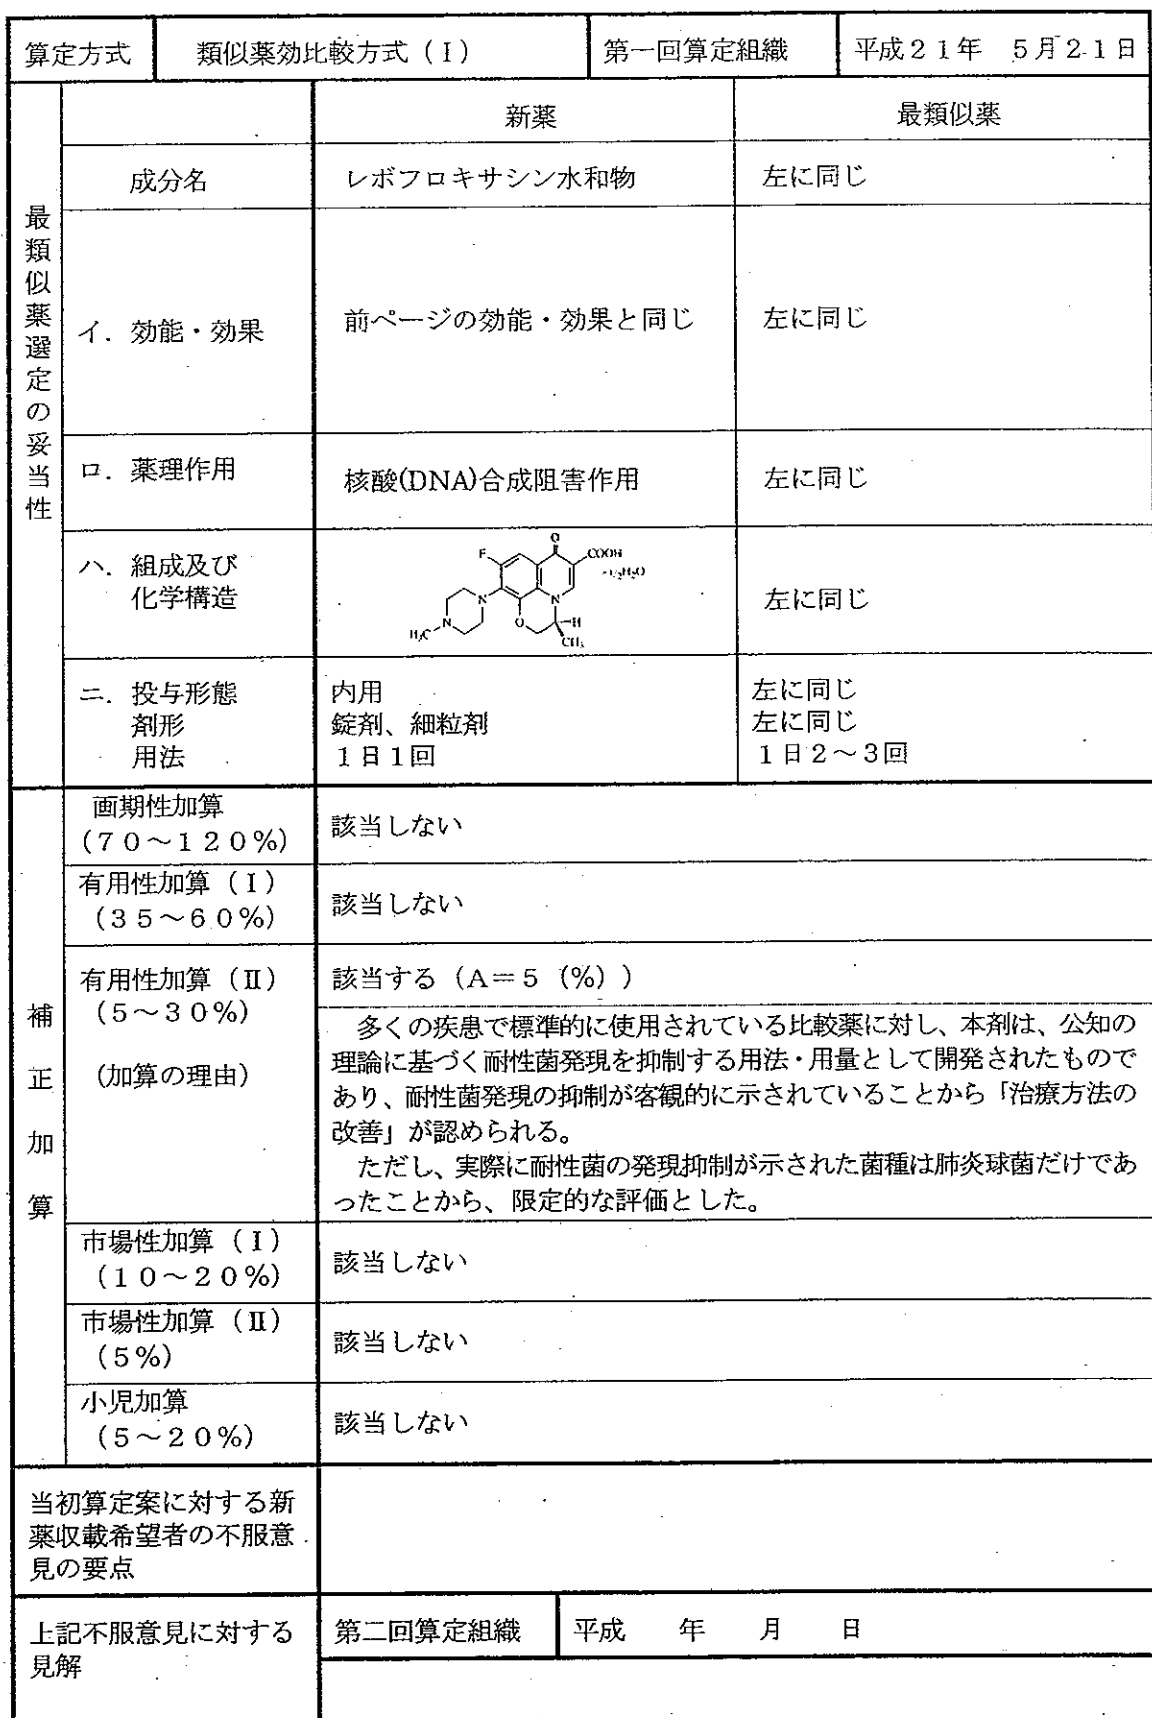 算定方式　類似薬効比較方式(Ⅰ)　第一回算定組織　平成21年　5月21日
最類似薬選定の妥当性
新薬　最類似薬
成分名　レボフロキサシン水和物　左に同じ
イ．効能・効果　前ページの効能・効果と同じ　左に同じ
ロ．薬理作用　核酸(DNA)合成阻害作用　左に同じ
ハ．組成及び
化学構造　左に同じ
F　O　COOH
・1/2H₂O
N　N
H₃C　N　O　H
CH₃
ニ．投与形態　内用　左に同じ
剤形　錠剤、細粒剤　左に同じ
用法　1日1回　1日2～3回
補正加算
画期性加算
(70～120%)　該当しない
有用性加算(Ⅰ)
(35～60%)　該当しない
有用性加算(Ⅱ)　該当する(A＝5(%))
(5～30%)
(加算の理由)
多くの疾患で標準的に使用されている比較薬に対し、本剤は、公知の
理論に基づく耐性菌発現を抑制する用法・用量として開発されたもので
あり、耐性菌発現の抑制が客観的に示されていることから「治療方法の
改善」が認められる。
ただし、実際に耐性菌の発現抑制が示された菌種は肺炎球菌だけであ
ったことから、限定的な評価とした。
市場性加算(Ⅰ)
(10～20%)　該当しない
市場性加算(Ⅱ)
(5%)　該当しない
小児加算
(5～20%)　該当しない
当初算定案に対する新
薬収載希望者の不服意
見の要点
上記不服意見に対する　第二回算定組織　平成　年　月　日
見解